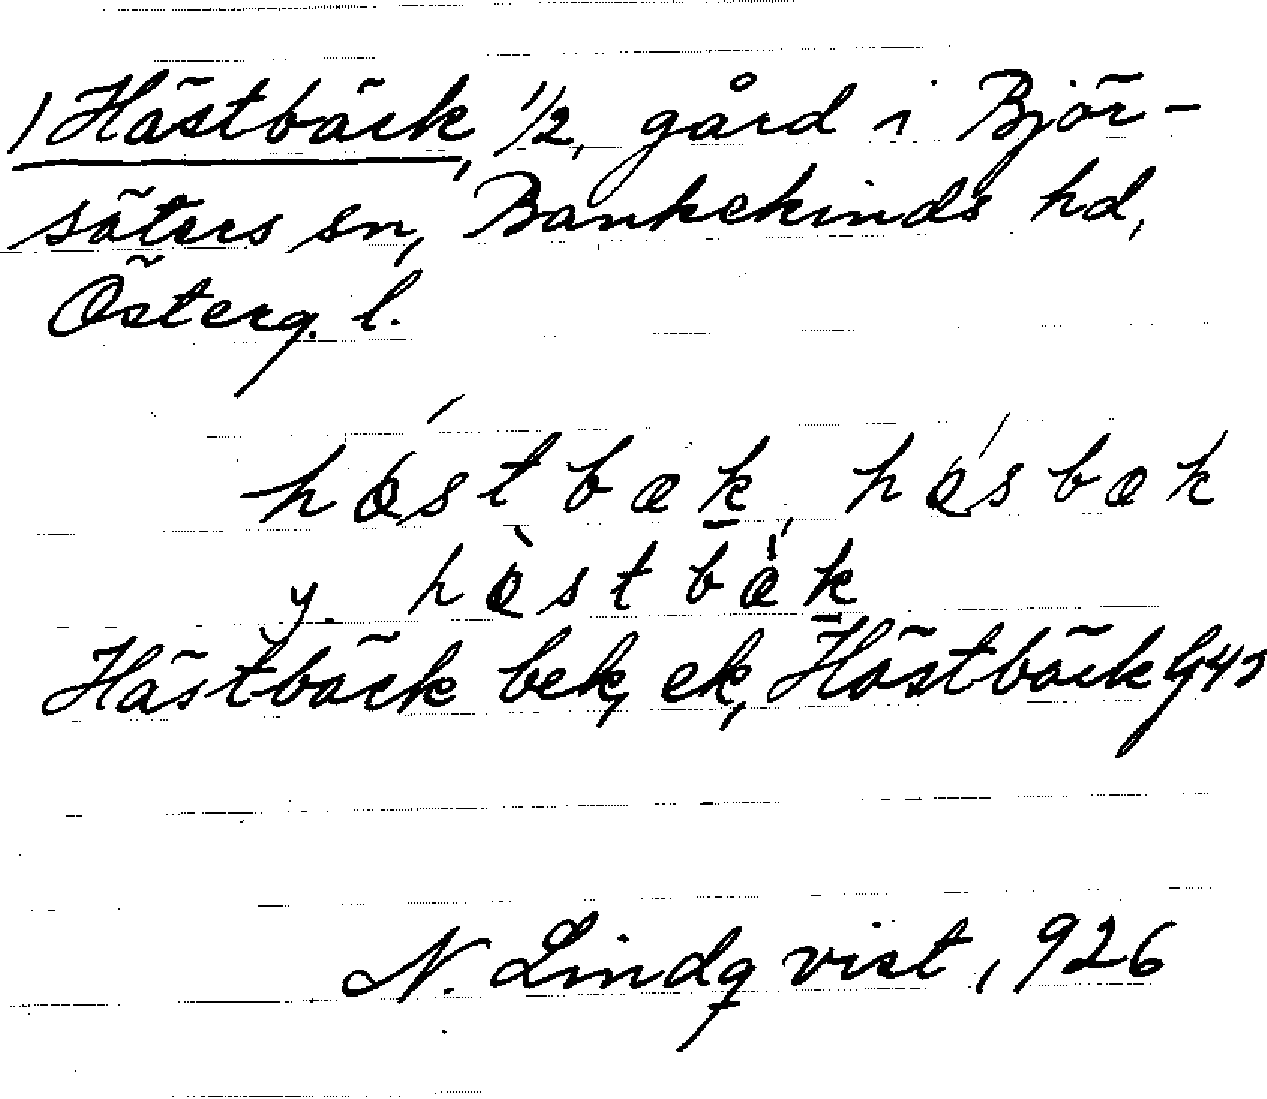 1 Hästbäck, 1/2, gård i Björ-
säters sn, Bankekinds hd,
Österg. l.
hæ´stbæk, hæ´sbæk
y. hæ`stbæ`k
Hästbäck bek, ek, Hästbäck G42
N. Lindqvist, 926